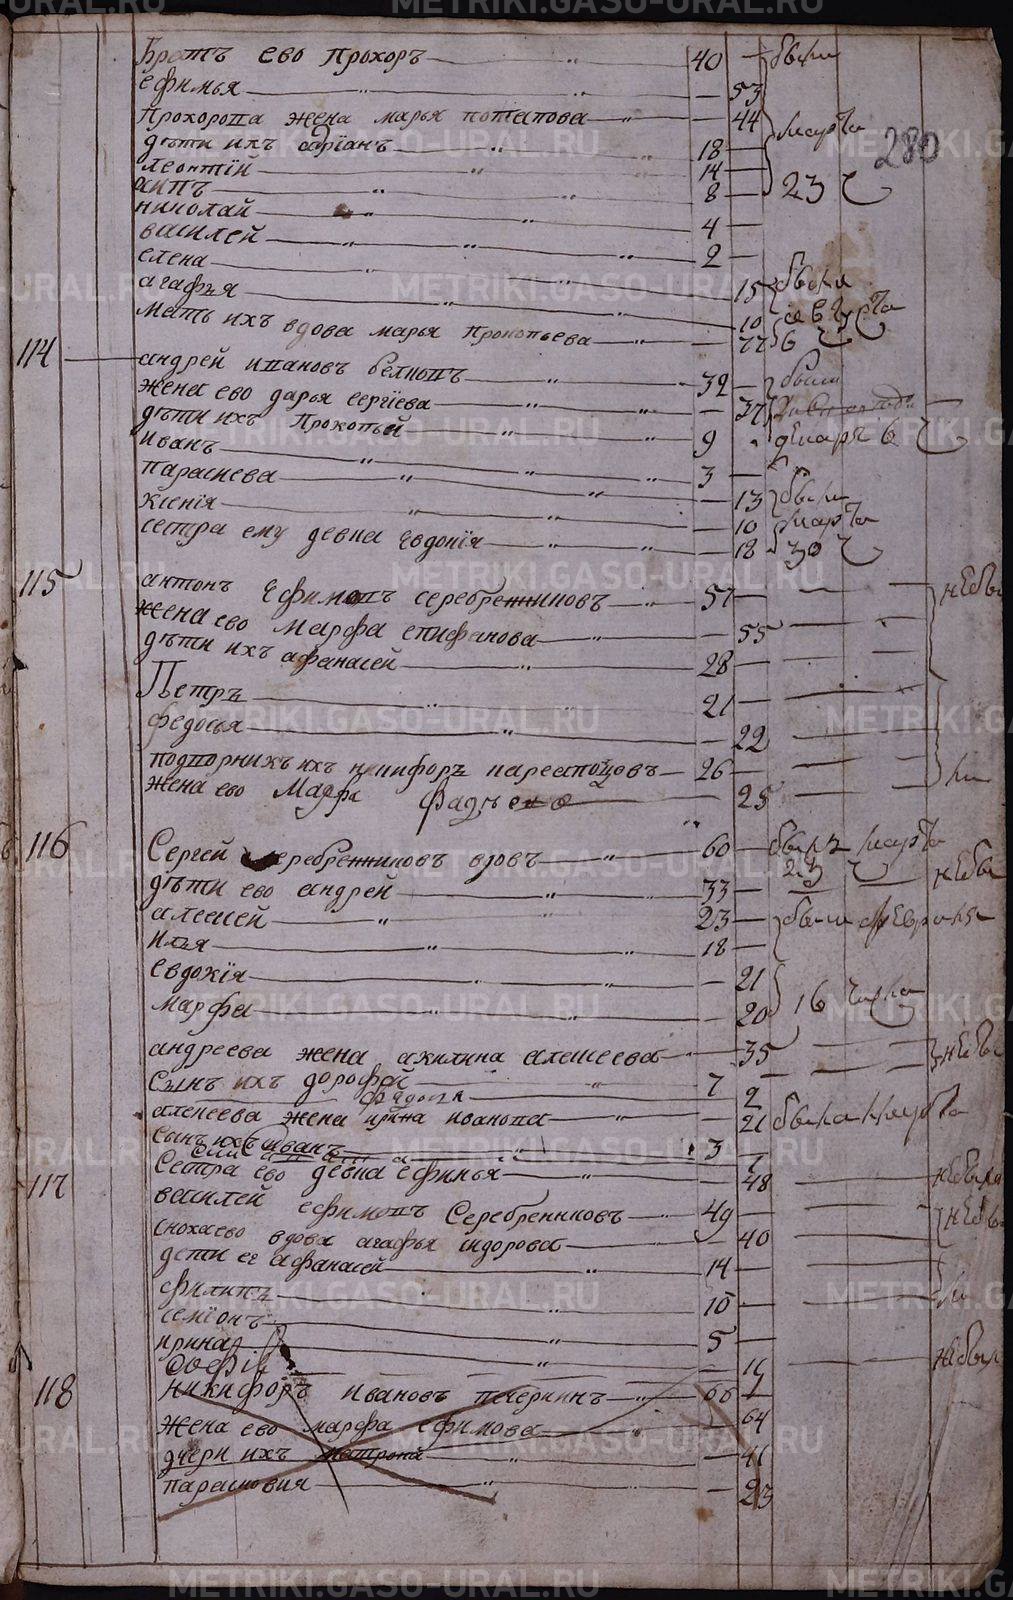 280
Братъ ево Прохоръ 40 были
ефимья 53
Прохорова жена марья потапова 44 марта
дѣти ихъ адрїанъ 18
леонтїй 14 23 ч
аипъ 8
николай 4
василей 2
елена 15 была
агафья 10 августа
мать ихъ вдова марья Прокопьева 77 6 ч
114 андрей ивановъ 32 были
жена ево дарья сергїева 37
дѣти ихъ Прокопьей 9 6 ч
иванъ 3
параскева 13 были
ксенїя 10 марта
сестра ему девка евдокїя 18 30 ч
115 антонъ ефимовъ серебрениковъ 57 небы
жена ево марфа епифанова 55
дѣти ихъ афанасей 28
Петръ 21
федосья 22
подворникъ ихъ никифоръ 26 ли
жена ево Марфа 25
116 Сергей серебрениковъ вдовъ 60 былъ марта
23 ч
дѣти ево андрей 33 небы
алексей 23 были февраля
илья 18
евдокїя 21
марфа 20 16 числа
андреева жена акилина алексеева 35 небы
сынъ ихъ дорофей 7
федосья 2
алексеева жена ирина иванова 21 была марта
сынъ ихъ иванъ 3
Сестра ево девка ефимья 48 небыла
117 василей ефимовъ Серебрениковъ 49 небы
сноха ево вдова агафья сидорова 40
дети ее афанасей 14 ли
филипъ 10
семїонъ 5
ирина небыл
софїя
118 Никифоръ ивановъ печеркинъ 66
жена ево марфа ефимова 64
дчери ихъ матрона 41
парасковия 23
METRIKI.GASO-URAL.RU